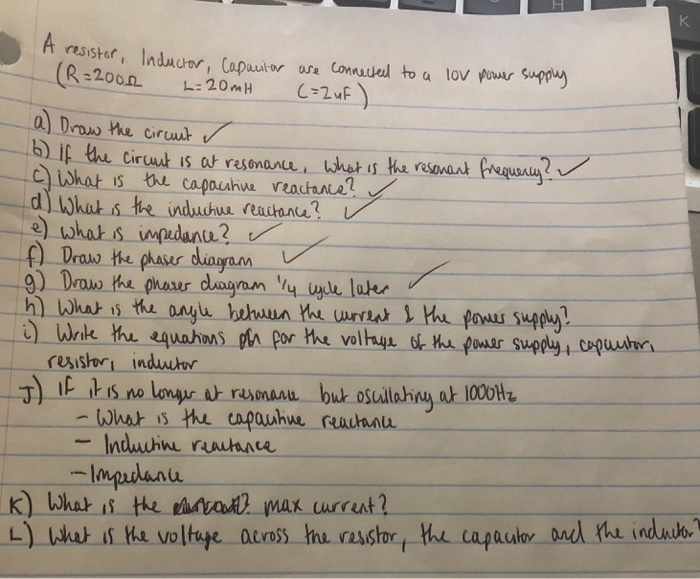 A resistor, Inductor, Capacitor are connected to a 10V power supply
(R=200Ω L=20mH C=2uF)
a) Draw the circuit ✓
b) If the circuit is at resonance, what is the resonant frequency? ✓
c) What is the capacitive reactance? ✓
d) What is the inductive reactance? ✓
e) what is impedance? ✓
f) Draw the phaser diagram ✓
g) Draw the phaser diagram 1/4 cycle later ✓
h) What is the angle between the current & the power supply?
i) Write the equations for the voltage of the power supply, capacitor,
resistor, inductor
J) If it is no longer at resonance but oscillating at 1000Hz
- What is the capacitive reactance
- Inductive reactance
- Impedance
K) What is the max current?
L) What is the voltage across the resistor, the capacitor and the inductor?
K